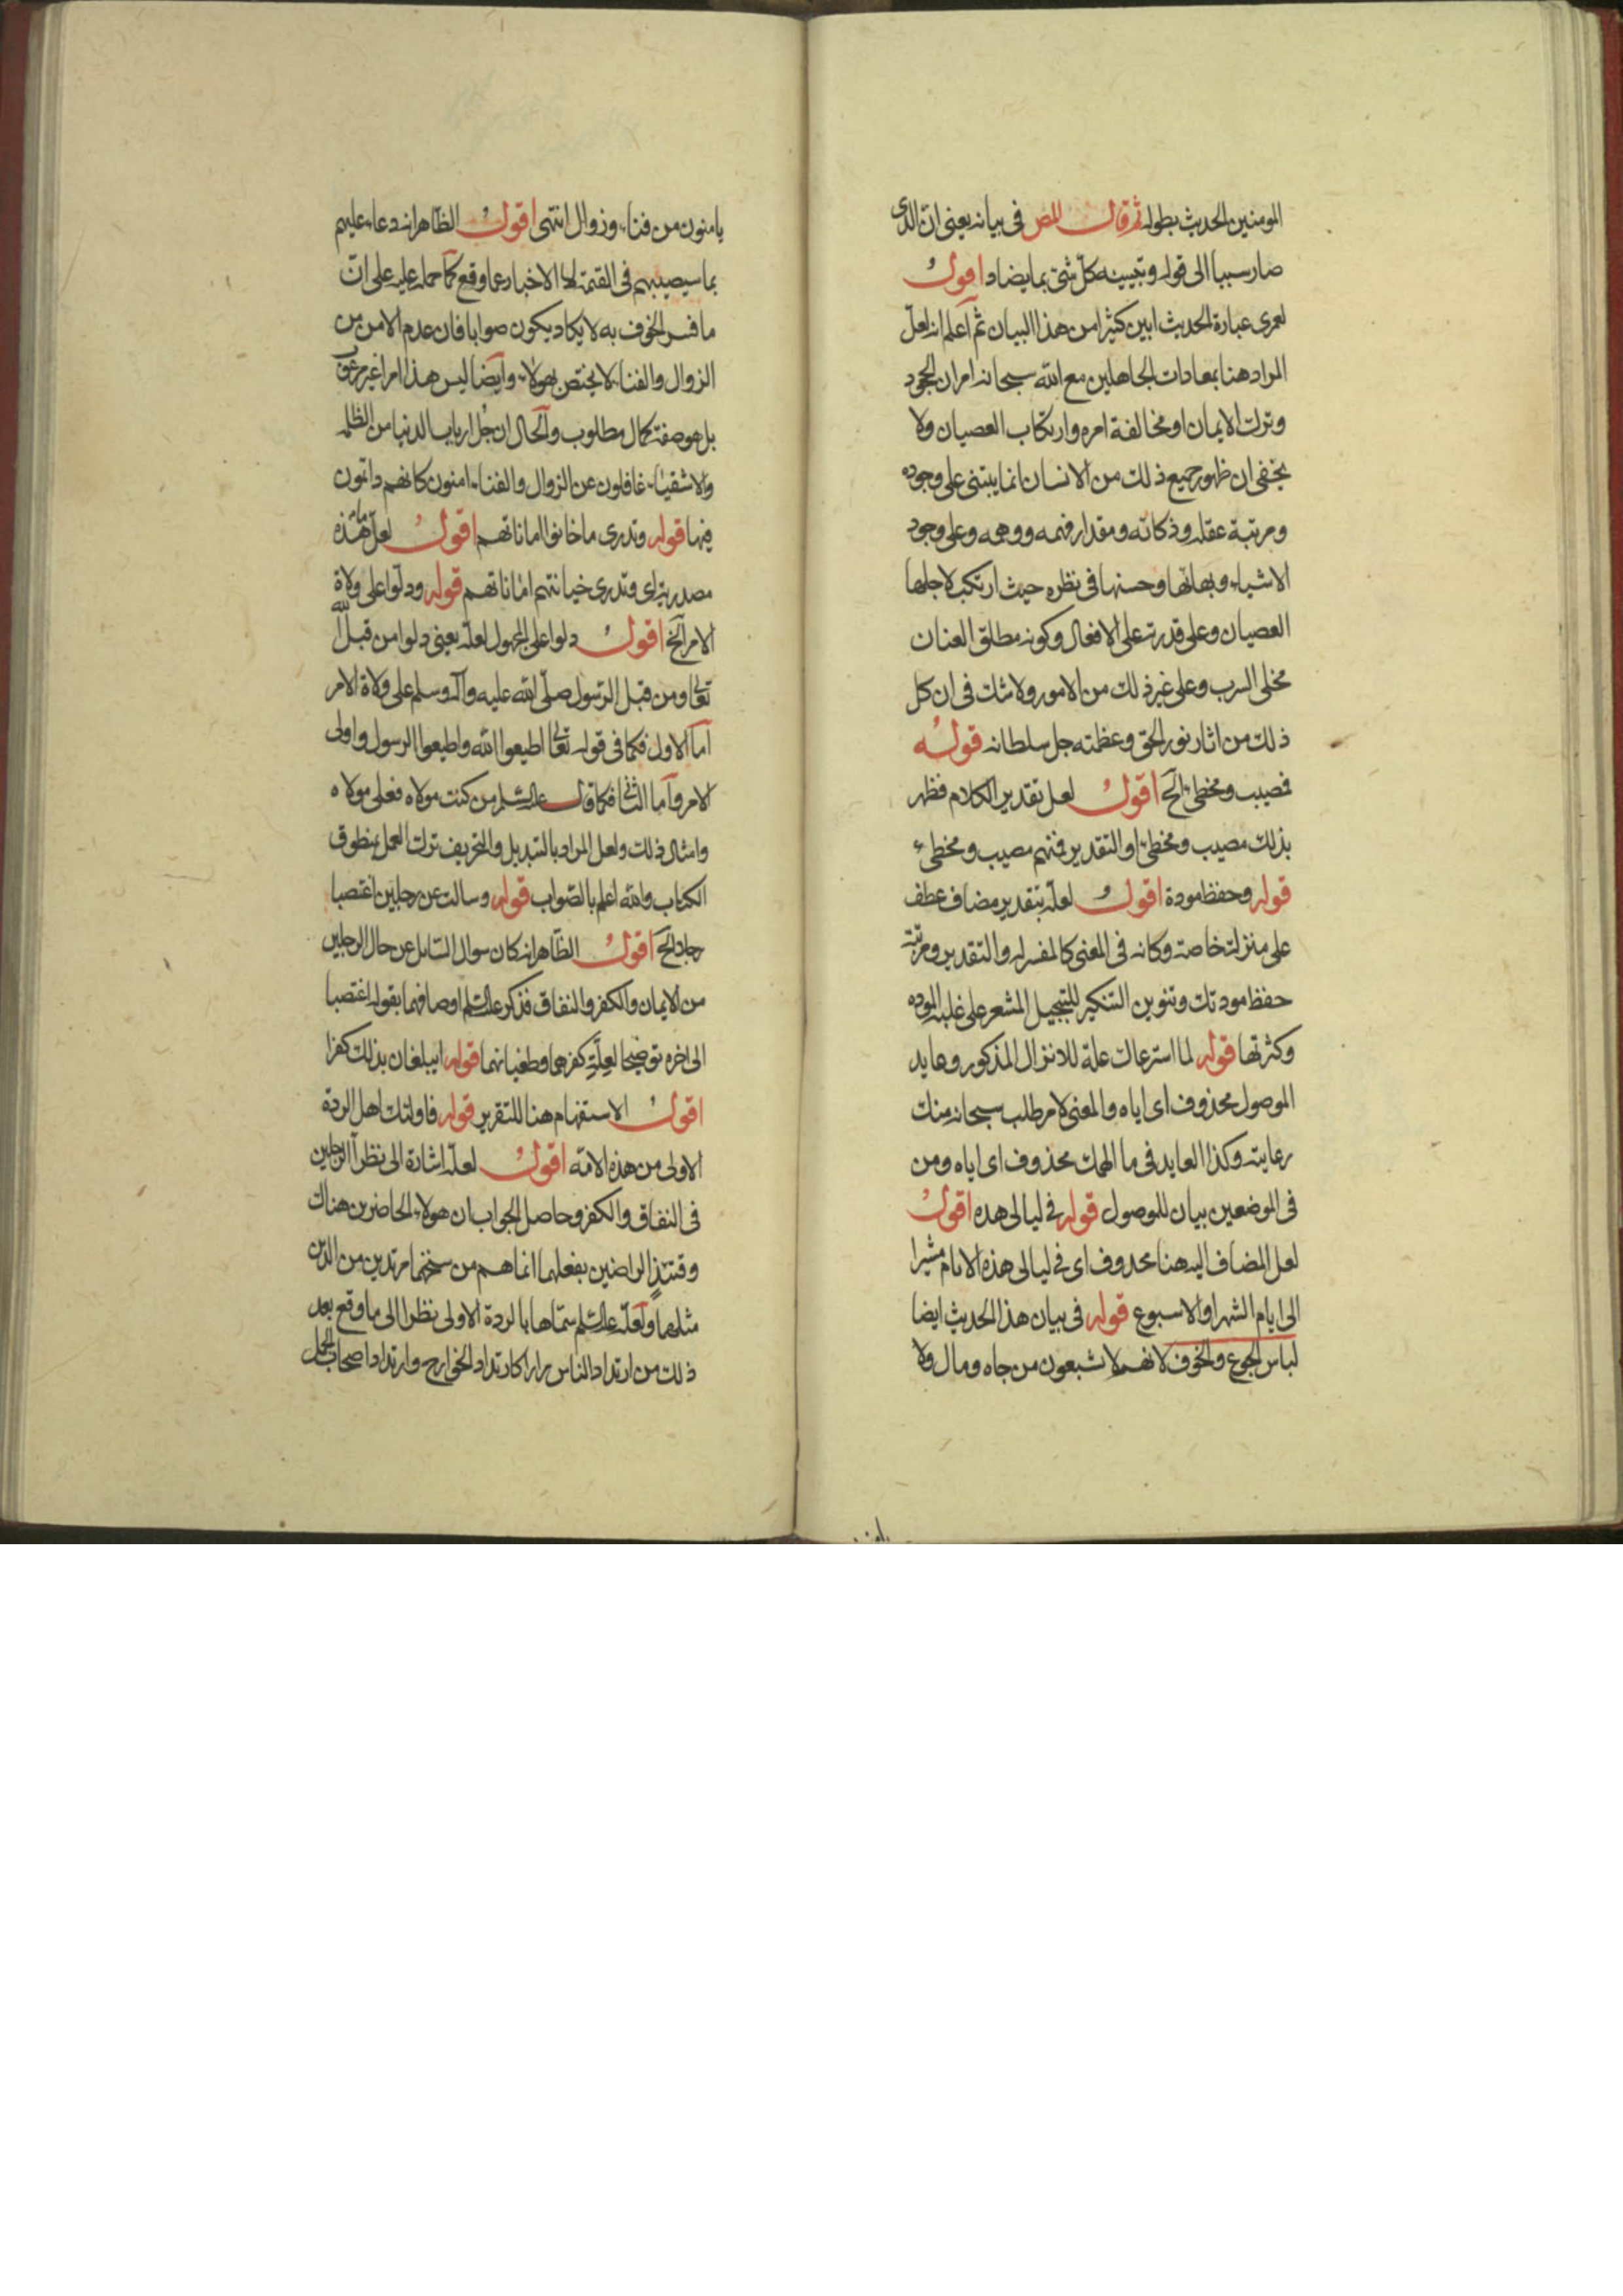 المومنين الحديث بطوله ثم قال المص فى بيانه يعنى ان الذى
صار سببا الى قوله وتبيينه كل شئ بما يضاد اقول
لعمرى عبارة الحديث ابين كثيرا من هذا البيان ثم اعلم انه لعل
المراد هنا بمعادات الجاهلين مع الله سبحانه امران الجحود
وترك الايمان او مخالفة امره وارتكاب العصيان ولا
يخفى ان ظهور جميع ذلك من الانسان انما يبتنى على وجوده
ومرتبة عقله وذكائه ومقدار فهمه ووهمه وعلى وجود
الاشياء وبهائها وحسنها فى نظره حيث ارتكب لاجلها
العصيان وعلى قدرته على الافعال وكونه مطلق العنان
مخلى السرب وعلى غير ذلك من الامور ولا شك فى ان كل
ذلك من اثار نور الحق وعظمته جل سلطانه قوله
فمصيب ومخطئ الخ اقول لعل تقدير الكلام فظهر
بذلك مصيب ومخطئ او التقدير فمنهم مصيب ومخطئ
قوله وحفظ مودة اقول لعله بتقدير مضاف عطف
على منزلة خاصة وكانه فى المعنى كالمفسر له والتقدير ومرتبة
حفظ مودتك وتنوين التنكير للتبجيل المشعر على غلبة الموده
وكثرتها قوله لما استرعاك علة للانزال المذكور وعايد
الموصول محذوف اى اياه والمعنى لامر طلب سبحانه منك
رعايته وكذا العايد فى ما الهمك محذوف اى اياه ومن
فى الموضعين بيان للموصول قوله فى ليالى هذه اقول
لعل المضاف اليه هنا محذوف اى فى ليالى هذه الايام مشيرا
الى ايام الشهر او الاسبوع قوله فى بيان هذا الحديث ايضا
لباس الجوع والخوف لانهم لا شبعون من جاه ومال ولا
يامنون من فناء وزوال انتهى اقول الظاهر انه دعاء عليهم
بما سيصيبهم فى القيمة لا الاخبار عما وقع كما حمله عليه على ان
ما فسر الخوف به لا يكاد يكون صوابا فان عدم الامن من
الزوال والفناء لا يختص بهولاء وايضا ليس هذا امرا غير مرغوب
بل هو صفة كمال مطلوب والحال ان جل ارباب الدنيا من الظلمه
والاشقياء غافلون عن الزوال والفناء امنون كانهم دائمون
فيها قوله وتدرى ما خانوا اماناتهم اقول لعل ما هذه
مصدرية اى وتدرى خيانتهم اماناتهم قوله ودلوا على ولاة
الامر الخ اقول دلوا على المجهول لعله يعنى دلوا من قبل الله
تعالى ومن قبل الرسول صلى الله عليه وآله وسلم على ولاة الامر
اما الاول فكما فى قوله تعالى اطيعوا الله واطيعوا الرسول واولى
الامر واما الثانى فكما قال عليه السلم من كنت مولاه فعلى مولاه
وامثال ذلك ولعل المراد بالتبديل والتحريف ترك العمل بمنطوق
الكتاب والله اعلم بالصواب قوله وسالت عن رجلين اغتصبا
رجلا الخ اقول الظاهر انه كان سوال السائل عن حال الرجلين
من الايمان والكفر والنفاق فذكر عليه السلم اوصافهما بقوله اغتصبا
الى اخره توضيحا لعلة كفرهما وطغيانهما قوله ايبلغان بذلك كفرا
اقول الاستفهام هنا للتقرير قوله فاولئك اهل الردة
الاولى من هذه الامة اقول لعله اشارة الى نظراء الرجلين
فى النفاق والكفر وحاصل الجواب ان هولاء الحاضرين هناك
وقتئذ الراضين بفعلهما انما هم من سنخهما مرتدين من الدين
مثلهما ولعله عليه السلم سماها بالردة الاولى نظرا الى ما وقع بعد
ذلك من ارتداد الناس مرارا كارتداد الخوارج وارتداد اصحاب الجمل